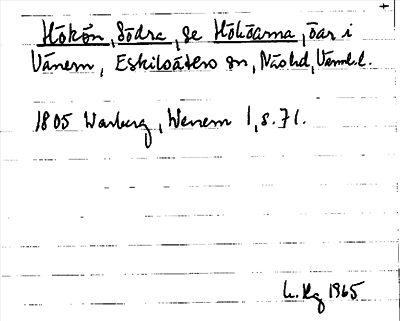 Hökön, Södra, se Hököarna, öar i
Vänern, Eskilsäters sn, Näs hd, Värml. l.
1805 Warberg, Wenern 1, s. 71.
1965